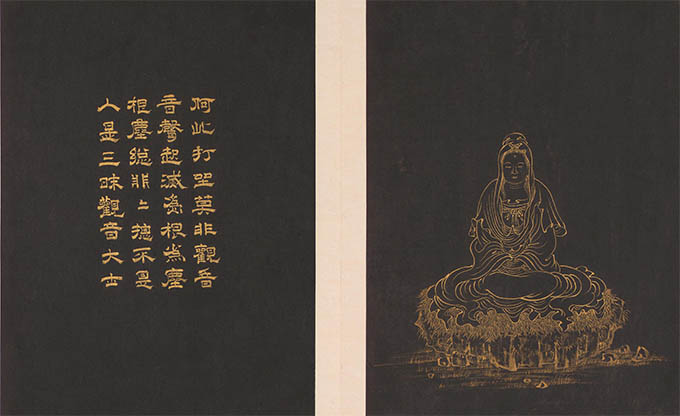 何此打坐莫非觀音
音聲起滅為根為塵
根塵總非〻總不是
入是三昧觀音大士